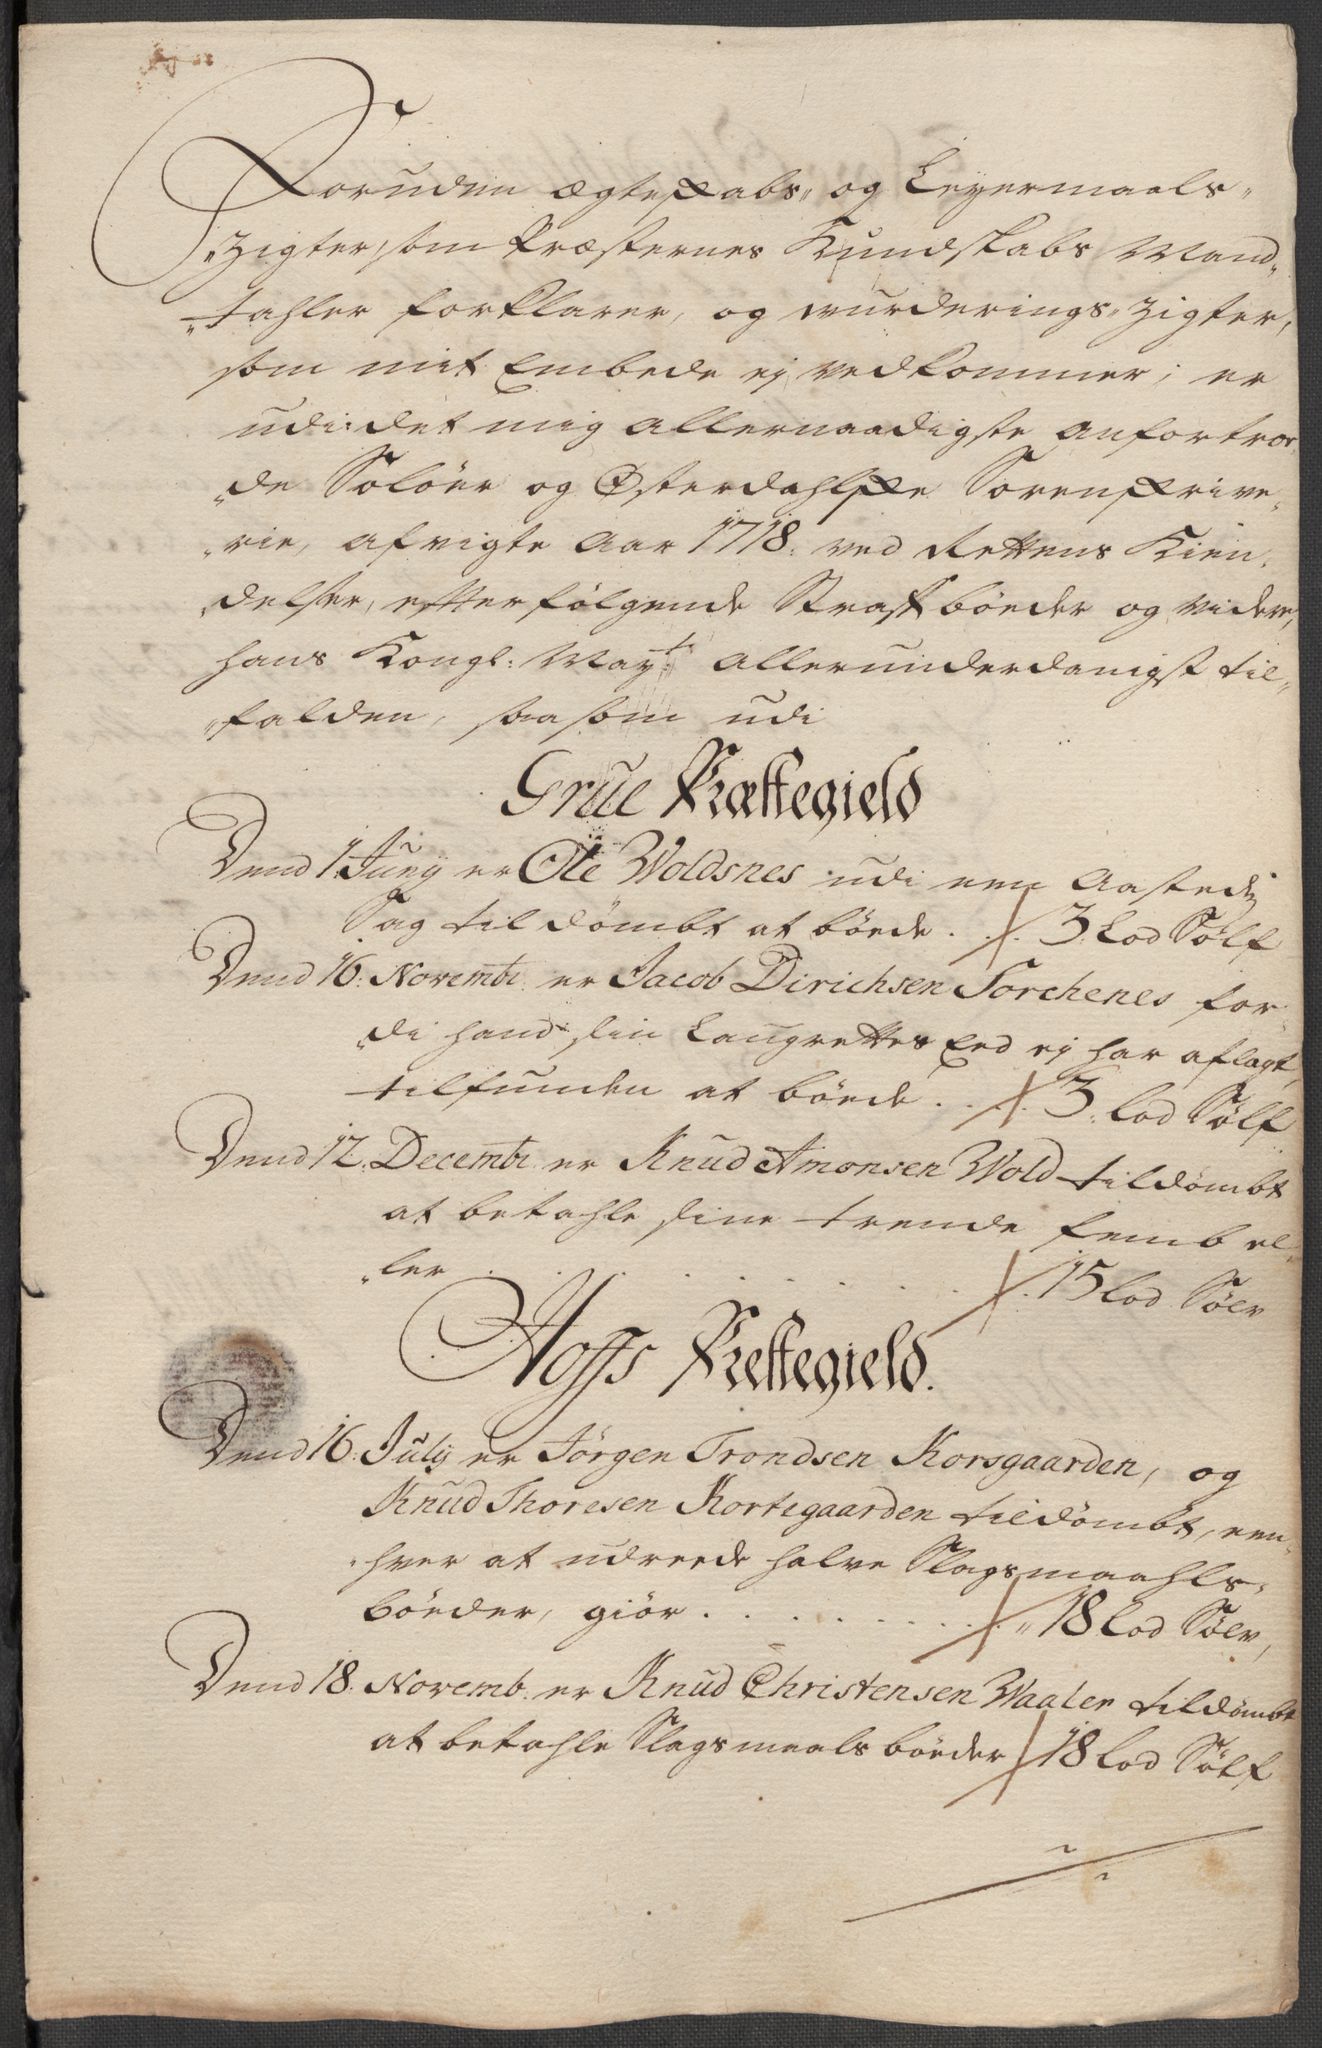 Foruden ægteskabs„ og Leyermaals„
„Zigter, som Præsternes Kundskabs Mand„
„tahler forklarer, og vurderings„ Zigter,
som mit Embede ej vedkommer; er
udi det mig allernaadigste anfortroe„
„de Solöer og Østerdahlske Sorenskrive„
„rie, afvigte Aar 1718: ved Rettens Kien„
„delser, efterfølgende Straffbøeder og videre,
hans Kongl: Mayt: allerunderdanigst til„
„falden, saasom udi
Grue Præstegield
Dend 1. Juny er Ole Woldsnes udi een Aasteds
Sag tildömbt at böede . . . 3. Lod Sölf
Dend 16: Novembr: er Jacob Dirichsen Torchenes for„
„di hand sin Laugrettes Eed ej har aflagt,
tilfunden at böede . . . 3. Lod Sölf
Dend 12. Decembr: er Knud Amonsen Wold tildömbt
at betahle sine trende femb el„
„ler . . . . . . . 15 Lod Sölv
Hoffs Præstegield.
Dend 16. July er Jörgen Trondsen Korsgaarden, og
Knud Thoresen Kortegaarden tildömbt, een„
„hver at udreede halve Slagsmaahls„
böeder, giör . . . . . . . „ 18 Lod Sölv,
Dend 18. Novemb: er Knud Christensen Waaler tildömbt
at betahle Slagsmaals böeder 18 Lod Sölf